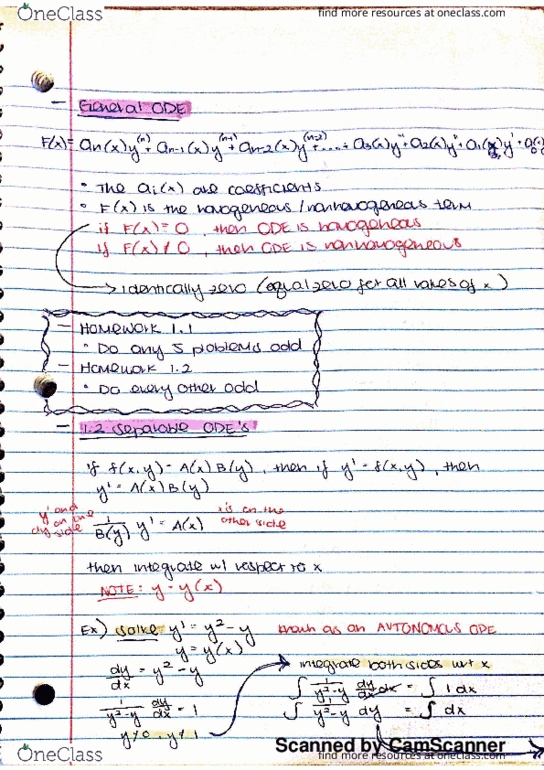 OneClass
find more resources at oneclass.com
- General ODE
F(x) = an(x)y^(n) + an-1(x)y^(n-1) + an-2(x)y^(n-2) + .... + a3(x)y''' + a2(x)y'' + a1(x)y' + a0(
• The ai(x) are coefficients
• F(x) is the homogeneous/nonhomogeneous term
if F(x) = 0, then ODE is homogeneous
if F(x) ≠ 0, then ODE is nonhomogeneous
→ identically zero (equal zero for all values of x)
- Homework 1.1
• Do any 5 problems odd
- Homework 1.2
• Do every other odd
- 1.2 Separable ODE's
if f(x,y) = A(x)B(y), then if y' = f(x,y), then
y' = A(x)B(y)
y' and dy on one side
1/B(y) y' = A(x)
x is on the other side
then integrate w/ respect to x
NOTE: y = y(x)
Ex) solve y' = y² - y known as an AUTONOMOUS ODE
y = y(x)
dy/dx = y² - y
1/(y²-y) dy/dx = 1
y≠0, y≠1
integrate both sides wrt x
∫ 1/(y²-y) dy/dx dx = ∫ 1 dx
∫ 1/(y²-y) dy = ∫ dx
Scanned by CamScanner
OneClass
find more resources at oneclass.com